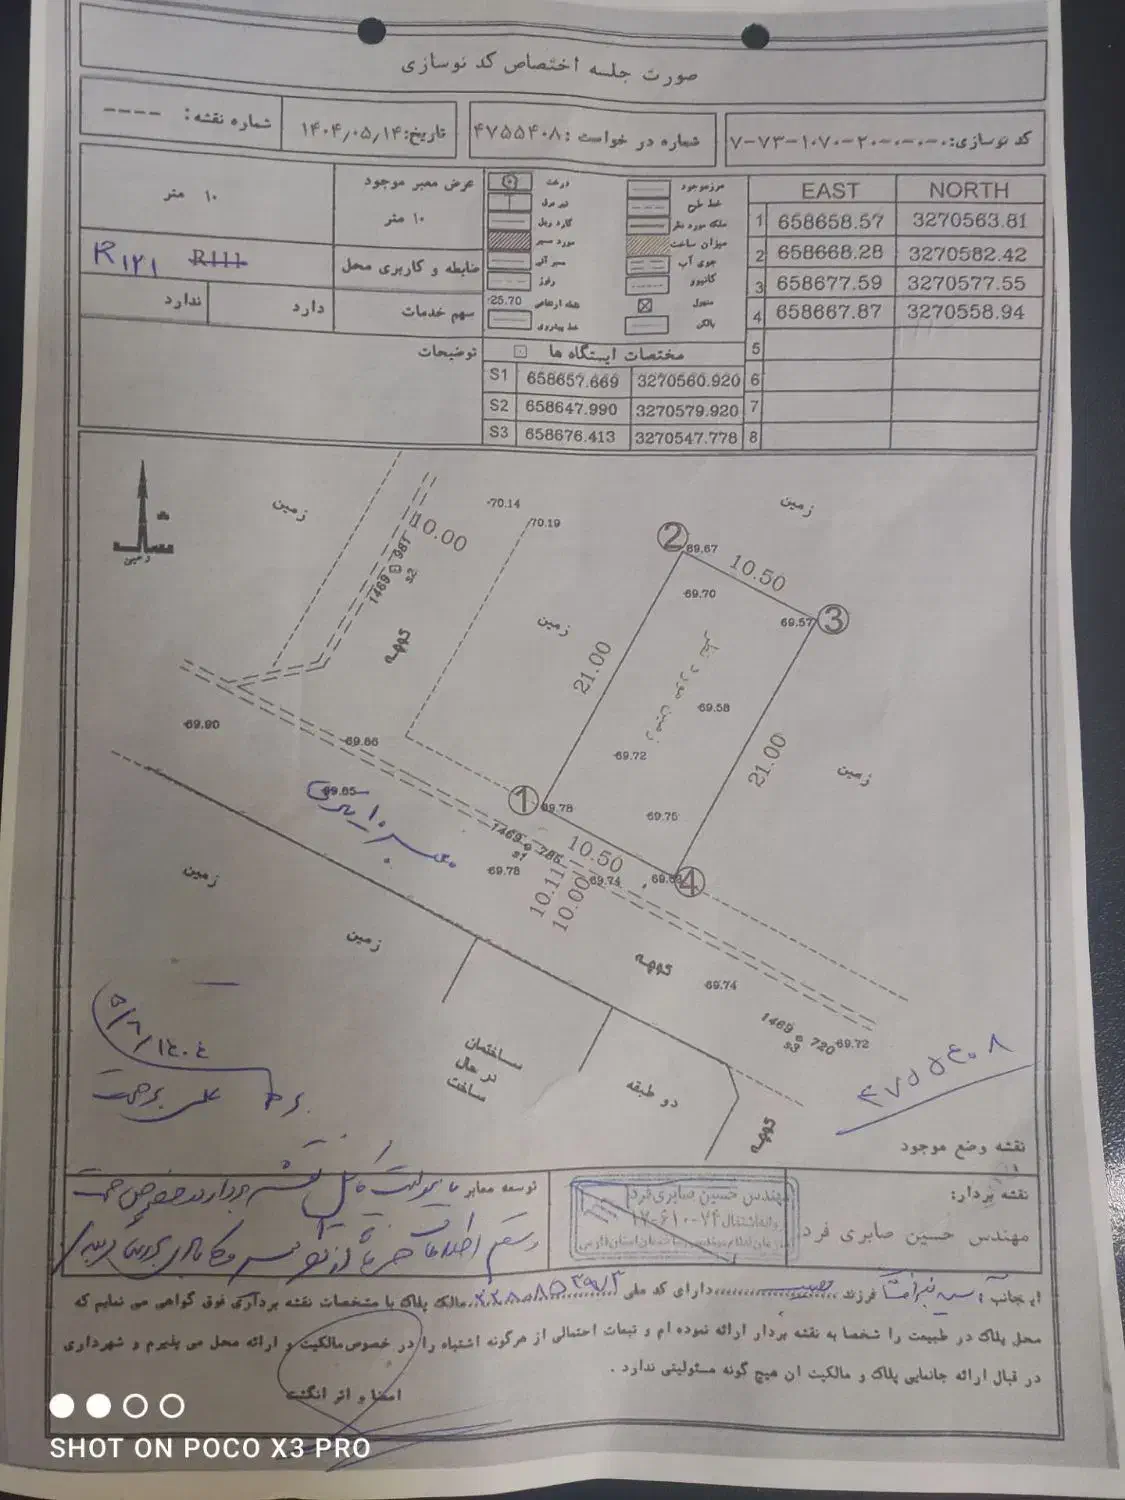 صورت جلسه اختصاص کد نوسازی
کد نوسازی: ۷-۷۳-۱۰۷۰-۲۰-۰-۰-۰
شماره در خواست: ۴۷۵۵۴۰۸
تاریخ: ۱۴۰۴/۰۵/۱۴
شماره نقشه: ----
EAST NORTH
1 658658.57 3270563.81
2 658668.28 3270582.42
3 658677.59 3270577.55
4 658667.87 3270558.94
5
6
7
8
مرزموجود
خط طرح
ملک مورد نظر
میزان ساخت
جوی آب
کانیوو
منهول
بالکن
درخت
تیر برق
گارد ریل
مورد مسیر
مسیر آب
رفوژ
25.70 نقطه ارتفاعی
خط پیاده روی
مختصات ایستگاه ها
S1 658657.669 3270560.920
S2 658647.990 3270579.920
S3 658676.413 3270547.778
عرض معبر موجود
۱۰ متر
۱۰ متر
ضابطه و کاربری محل
R۱۱۱ R۱۲۱
سهم خدمات
دارد
ندارد
توضیحات
زمین
10.00
70.14
70.19
زمین
2
69.67
10.50
69.70
69.57
3
1469 987
s2
کوچه
زمین
21.00
زمین مورد نظر
69.58
69.72
21.00
زمین
69.90
69.86
69.85
معبر ۱۰ متری
1
69.78
69.75
1469 786
s1
10.50
69.78
10.11
10.00
69.74
4
زمین
زمین
کوچه
69.74
1469 720
s3
69.72
۱۴۰۴/۸/۵
ساختمان
در حال
ساخت
دو طبقه
کوچه
۴۷۵۵۴۰۸
نقشه وضع موجود
نقشه بردار:
مهندس حسین صابری فرد
مهندس حسین صابری فرد
۱۷-۶۱۰-۷۴
توسعه معابر
اینجانب فرزند دارای کد ملی مالک پلاک با مشخصات نقشه برداری فوق گواهی می نمایم که
محل پلاک در طبیعت را شخصا به نقشه بردار ارائه نموده ام و تبعات احتمالی از هرگونه اشتباه را در خصوص مالکیت و ارائه محل می پذیرم و شهرداری
در قبال ارائه جانمایی پلاک و مالکیت ان هیچ گونه مسئولیتی ندارد .
امضا و اثر انگشت
SHOT ON POCO X3 PRO